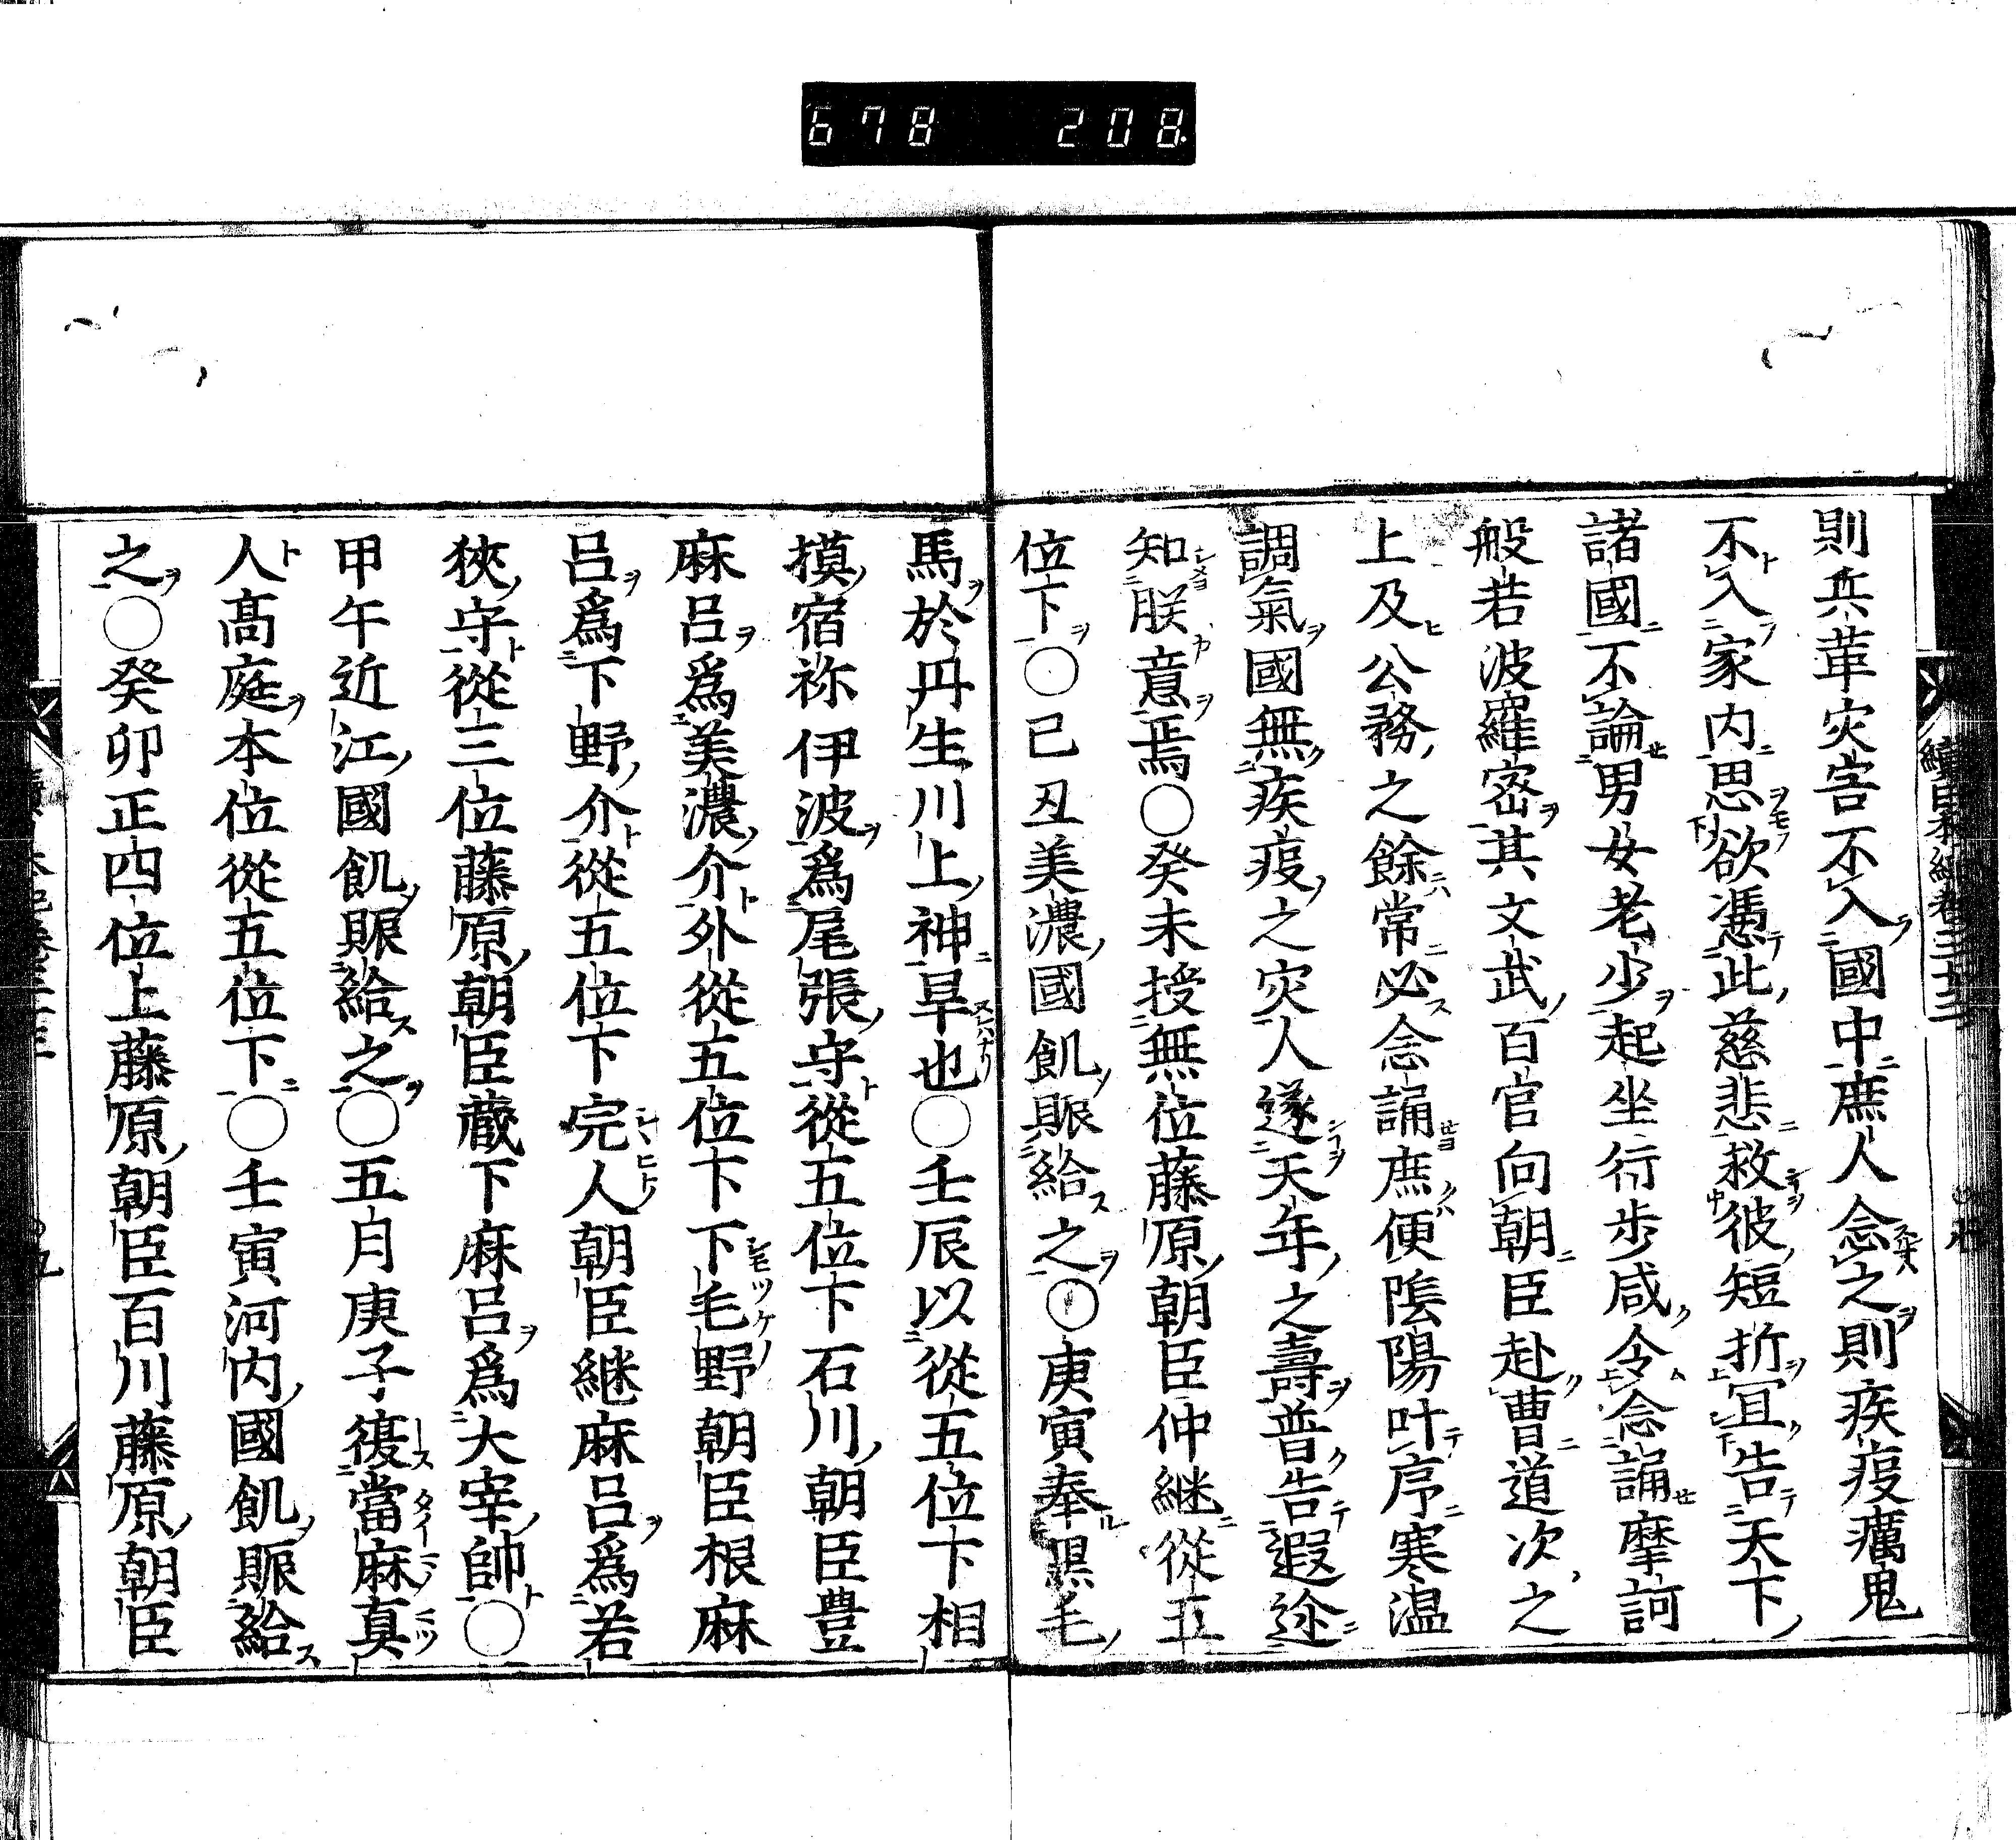 678 208
則兵革灾害不入國中庶人念之則疾疫癘鬼
不入家內思欲憑此慈悲救彼短折宜告天下
諸國不論男女老少起坐行步咸令念誦摩訶
般若波羅密其文武百官向朝臣赴曹道次之
上及公務之餘常必念誦庶便陰陽叶序寒温
調氣國無疾疫之灾人遂天年之壽普告遐迩
知朕意焉〇癸未授無位藤原朝臣仲継從五
位下〇己丑美濃國飢賑給之〇庚寅奉黒毛
馬於丹生川上神旱也〇壬辰以從五位下相
摸宿祢伊波爲尾張守從五位下石川朝臣豊
麻呂爲美濃介外從五位下下毛野朝臣根麻
呂爲下野介從五位下完人朝臣継麻呂爲若
狹守從三位藤原朝臣藏下麻呂爲大宰帥〇
甲午近江國飢賑給之〇五月庚子復當麻真
人高庭本位從五位下〇壬寅河內國飢賑給
之〇癸卯正四位上藤原朝臣百川藤原朝臣